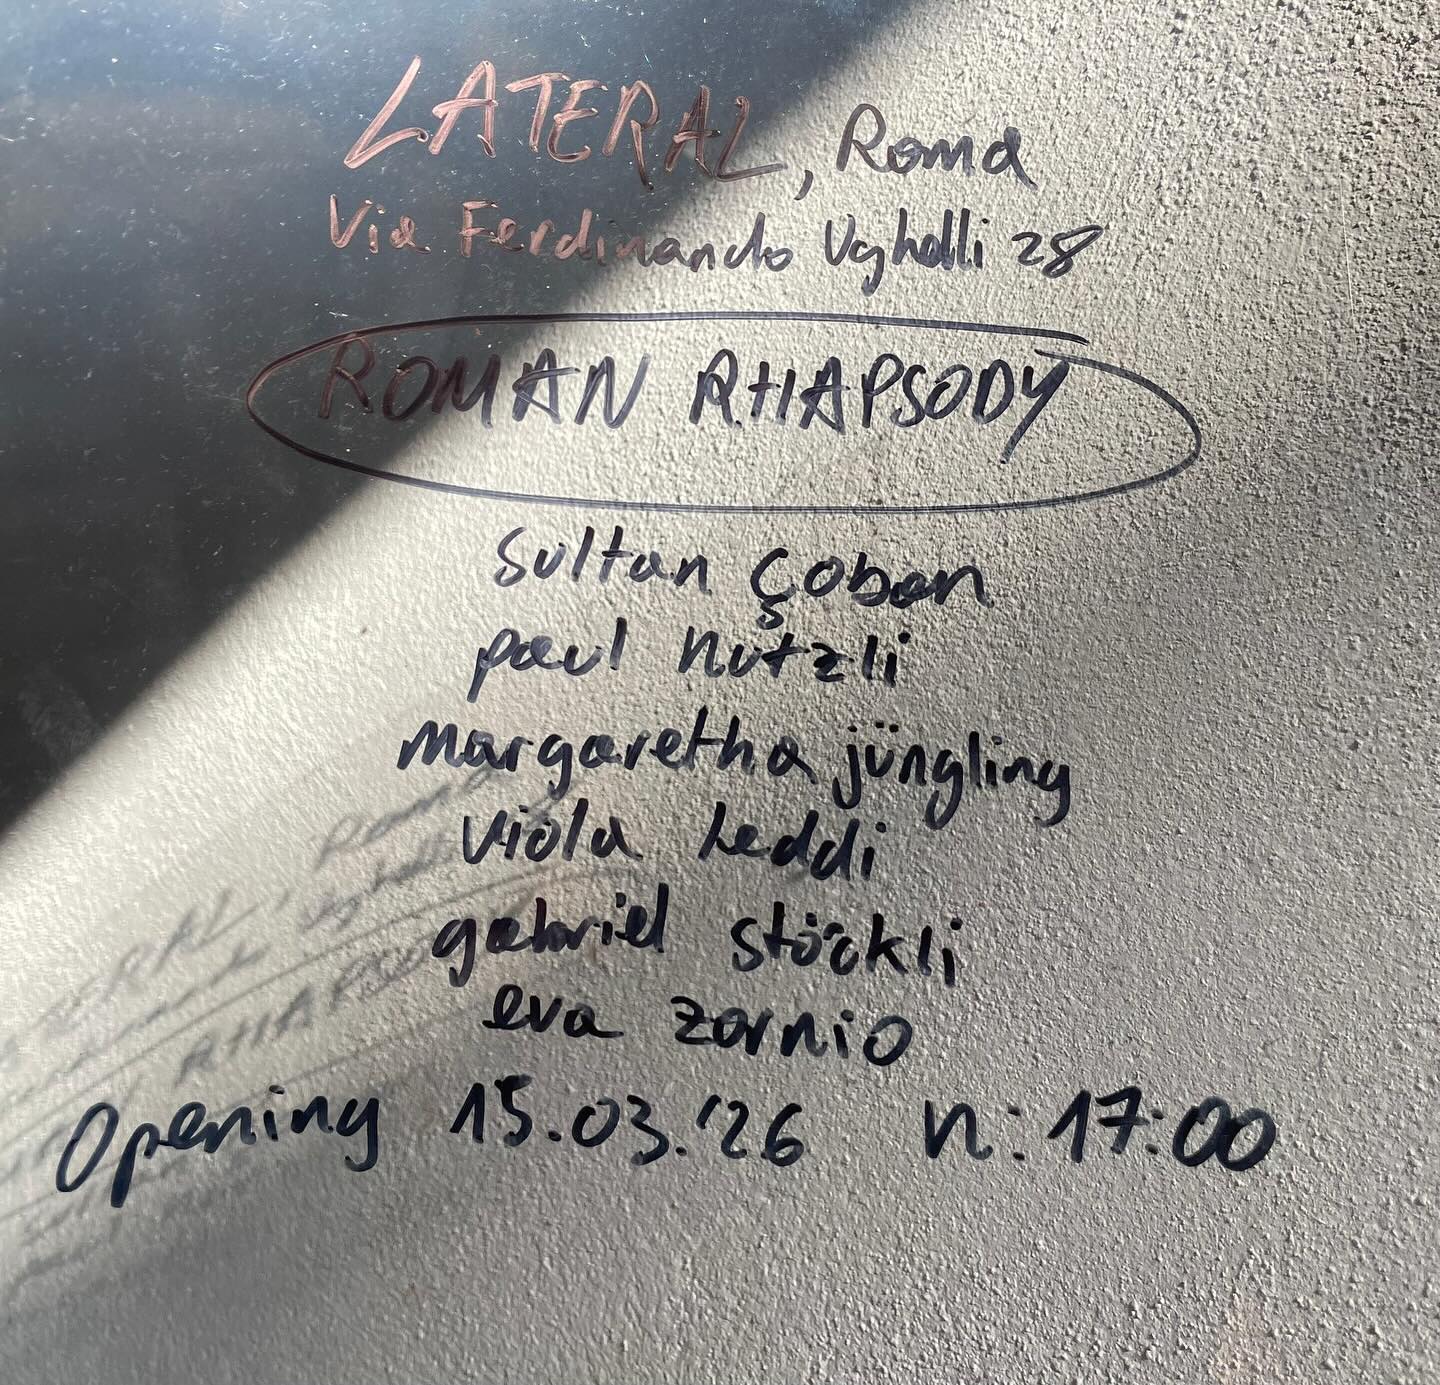 LATERAL, Roma
Via Ferdinando Ughelli 28
ROMAN RHAPSODY
Sultan Çoban
paul nützli
margaretha jüngling
viola leddi
gabriel stöckli
eva zornio
Opening 15.03.'26 n: 17:00